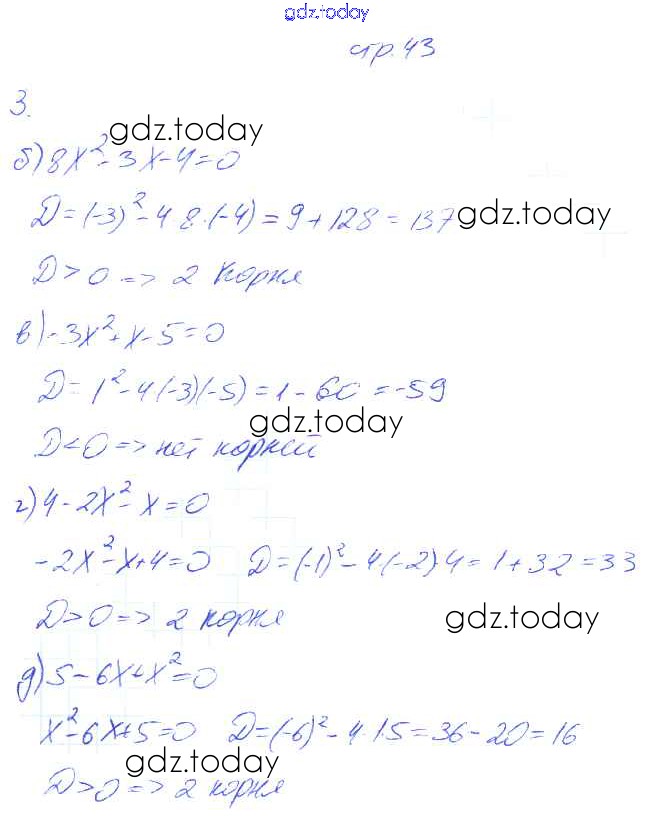 gdz.today
стр.43
3.
gdz.today
б) 8x² - 3x - 4 = 0
D = (-3)² - 4·8·(-4) = 9 + 128 = 137
gdz.today
D > 0 => 2 корня
в) -3x² + x - 5 = 0
D = 1² - 4(-3)(-5) = 1 - 60 = -59
gdz.today
D < 0 => нет корней
г) 4 - 2x² - x = 0
-2x² - x + 4 = 0 D = (-1)² - 4·(-2)·4 = 1 + 32 = 33
D > 0 => 2 корня
gdz.today
д) 5 - 6x + x² = 0
x² - 6x + 5 = 0 D = (-6)² - 4·1·5 = 36 - 20 = 16
gdz.today
D > 0 => 2 корня